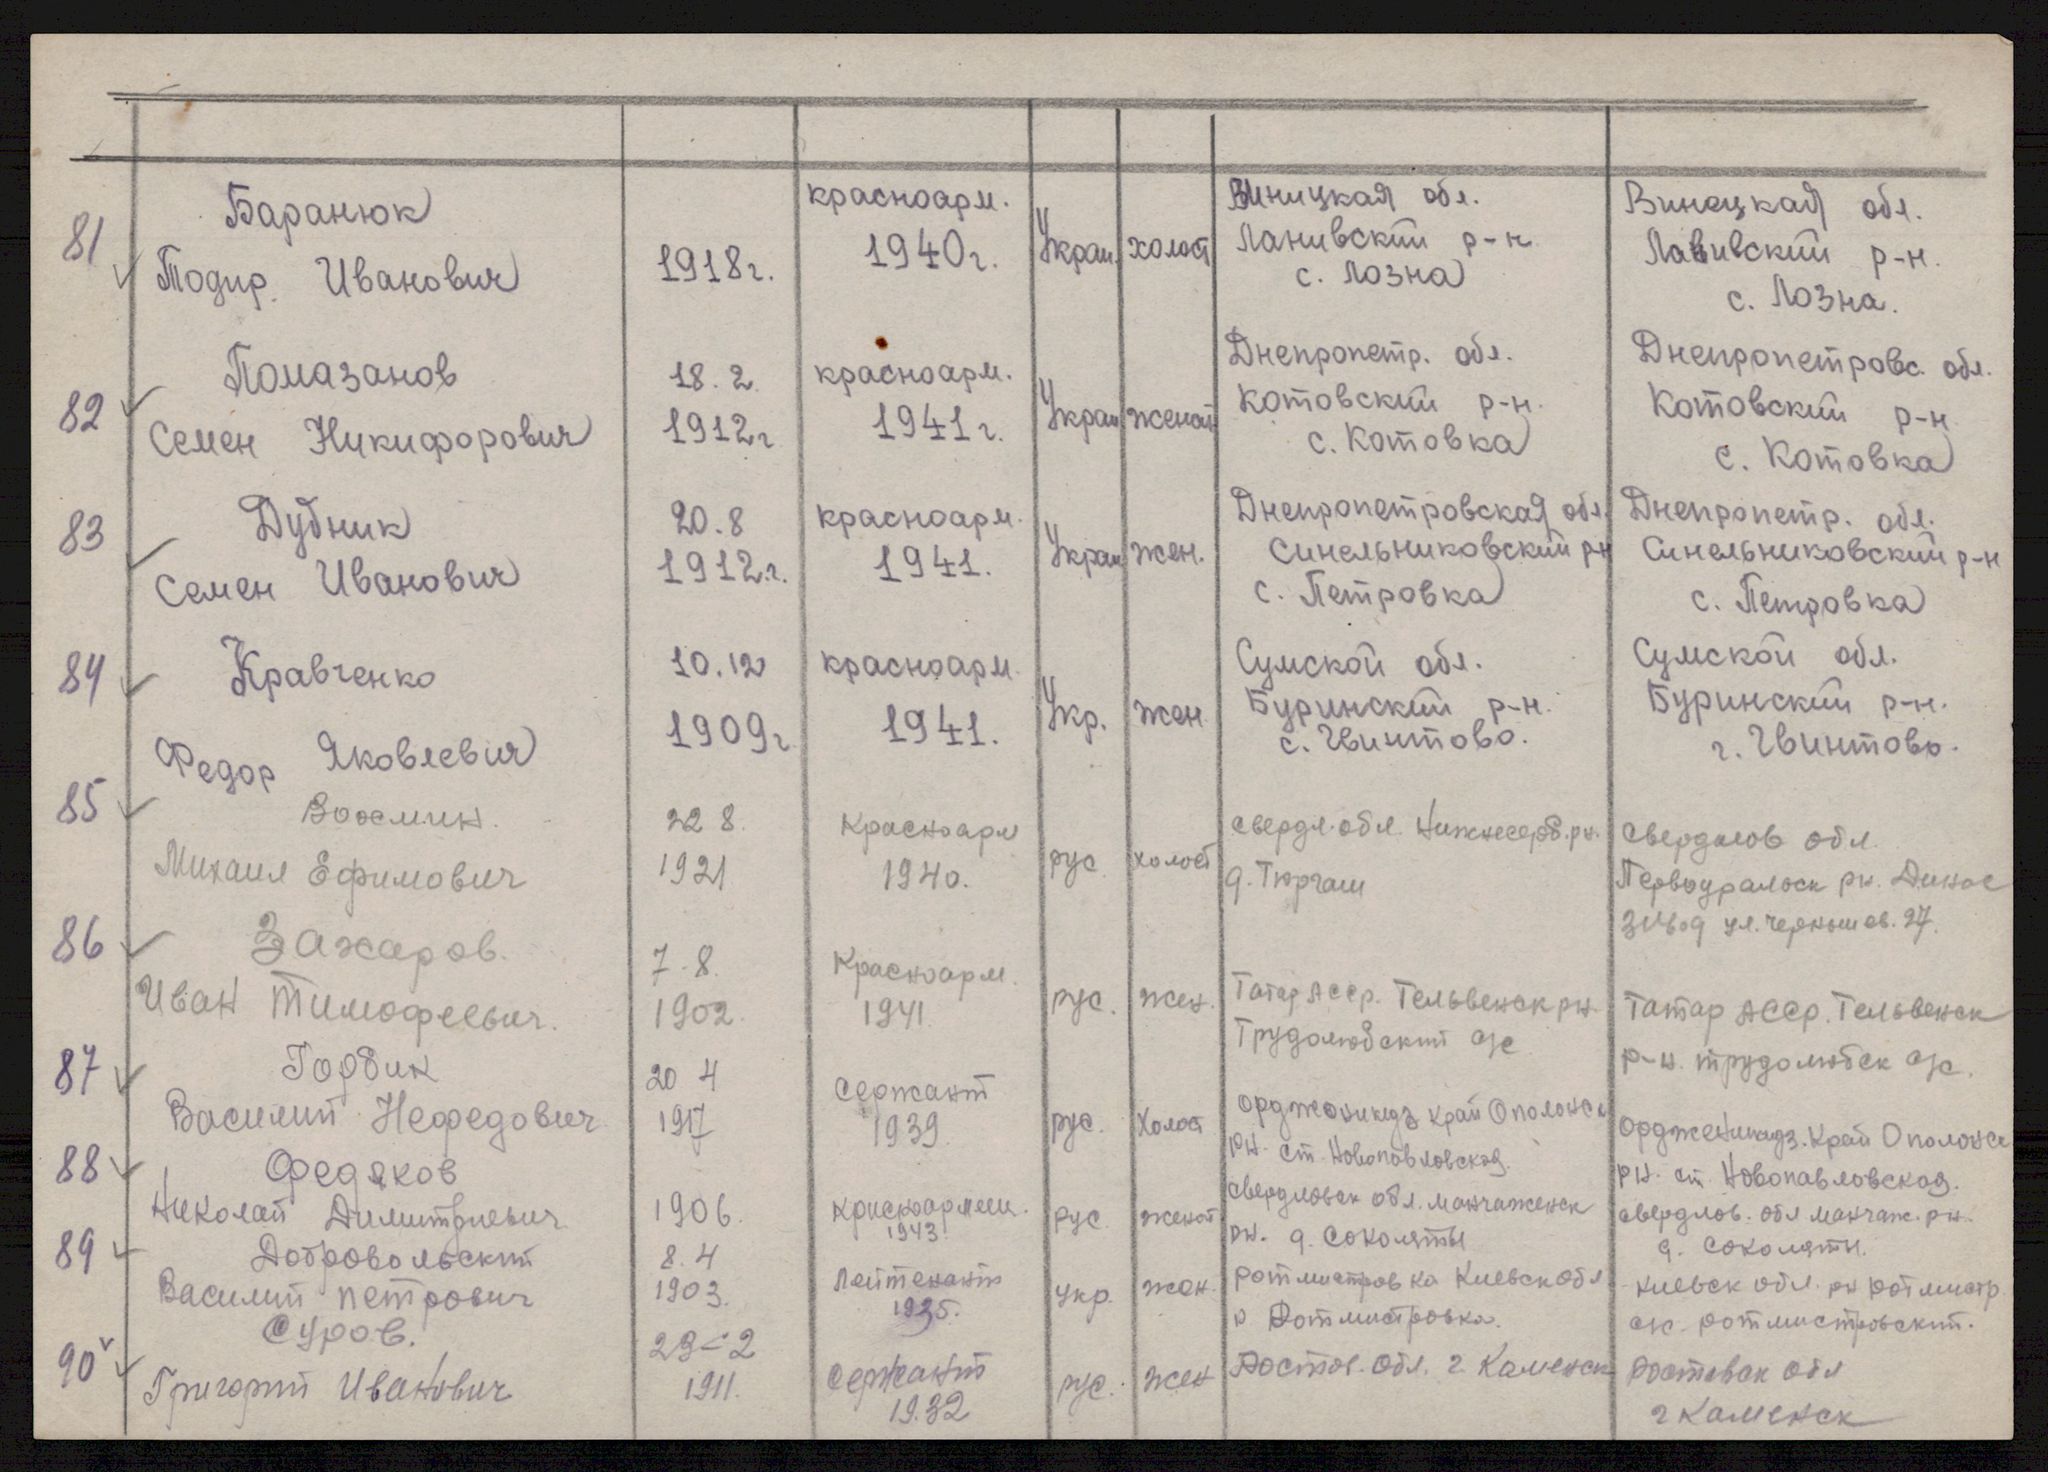 81 Баранюк Тодир. Иванович 1918г. красноарм. 1940г. Украи. холост Виницкая обл. Ланивский р-н. с. Лозна Винецкая обл. Лавивский р-н. с. Лозна.
82 Помазанов Семен Никифорович 18.2. 1912г красноарм. 1941г. Украи женат Днепропетр. обл. Котовский р-н. с. Котовка Днепропетровс. обл. Котовский р-н. с. Котовка
83 Дубник Семен Иванович 20.8 1912.г. красноарм. 1941. Украи жен. Днепропетровская обл. Синельниковский р-н с. Петровка Днепропетр. обл. Синельниковский р-н с. Петровка
84 Кравченко Федор Яковлевич 10.12 1909г красноарм. 1941. Укр. жен. Сумской обл. Буринский р-н. с. Гвинтово. Сумской обл. Буринский р-н. г. Гвинтово.
85 Вохмин. Михаил Ефимович 22 8. 1921 Красноарм 1940. рус. холост свердл. обл. Нижнесерг. рн. д. Тюргаш свердлов обл. Первоуральск рн. Динас завод ул. Чернышев. 27.
86 Захаров. Иван Тимофеевич. 7-8. 1902. Красноарм. 1941 рус. жен. Татар АССР. Тельвенск рн. Трудолюбский с/с Татар АССР. Тельвенск р-н. трудолюбск с/с.
87 Годвик Василий Нефедович 20 4 1917 сержант 1939. рус. Холост орджоникидз край Ополонск рн. ст. Новопавловская. ордженикидз. край Ополонск рн. ст. Новопавловская.
88 Федяков Николай Димитриевич 1906. красноармеец. 1943 рус. женат свердловск обл. манчаженск рн. д. Соколяты свердлов. обл манчаж. рн. д. Соколяти.
89 Добровольский Василий Петрович 8.4 1903. Лейтенант 1935. укр. жен. ротмистровка Киевск обл Ротмистровка. киевск обл. рн ротмистр с/с. ротмистровский.
90 Суров. Григорий Иванович 23-2 1911. сержант 1932 рус. жен Ростов. обл. г. Каменск Ростовск обл г Каменск